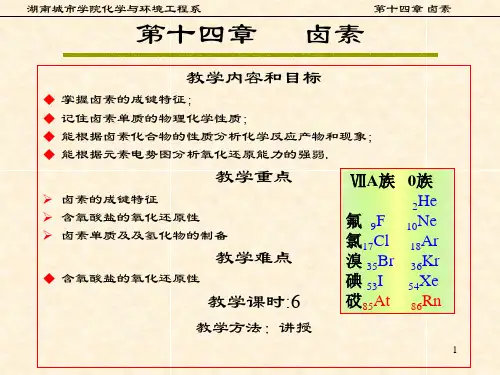 湖南城市学院化学与环境工程系 第十四章 卤素
第十四章 卤素
教学内容和目标
◆ 掌握卤素的成键特征；
◆ 记住卤素单质的物理化学性质；
◆ 能根据卤素化合物的性质分析化学反应产物和现象；
◆ 能根据元素电势图分析氧化还原能力的强弱．
教学重点
➢ 卤素的成键特征
➢ 含氧酸盐的氧化还原性
➢ 卤素单质及及氢化物的制备
教学难点
◆ 含氧酸盐的氧化还原性
教学课时:6
教学方法：讲授
ⅦA族 0族
2He
氟 9F 10Ne
氯17Cl 18Ar
溴35Br 36Kr
碘 53I 54Xe
砹85At 86Rn
1